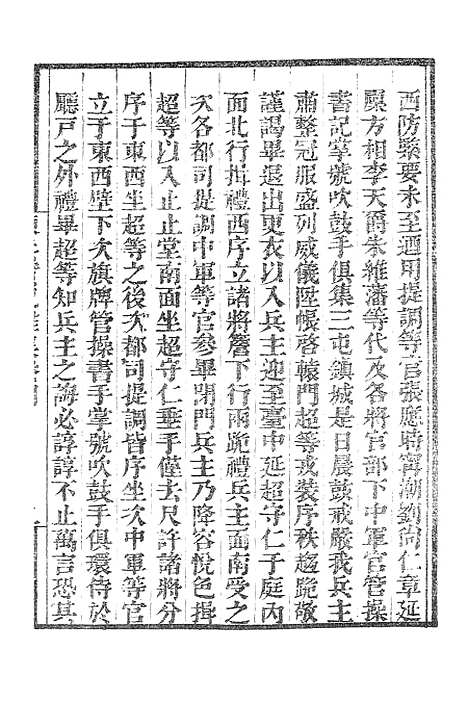 西防縣要未至迺用提調等官張應時甯潮劉尚仁章延
廩方相李天爵朱維藩等代及各將官部下中軍官管操
書記掌號吹鼓手俱集三屯鎮城是日晨鼓戒嚴我兵主
肅整冠服盛列威儀陞帳啓轅門超等戎裝序秩趨跪敬
謹謁畢退出更衣以入兵主迎至臺中延超守仁子庭內
面北行揖禮西序立諸將簷下行兩跪禮兵主面南受之
次各都司提調中軍等官參畢閉門兵主乃降容悅色揖
超等以入止止堂南面坐超守仁垂手僅去尺許諸將分
序于東西坐超等之後次都司提調皆序坐次中軍等官
立于東西壁下次旗牌管操書手掌號吹鼓手俱環侍於
廳戸之外禮畢超等知兵主之誨必諄諄不止萬言恐其